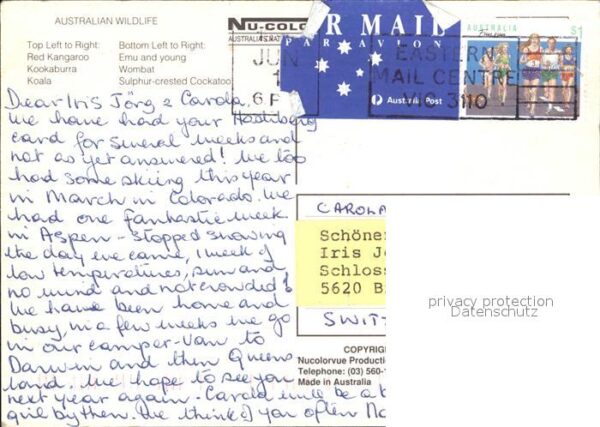 AUSTRALIAN WILDLIFE
Top Left to Right:
Red Kangaroo
Kookaburra
Koala
Bottom Left to Right:
Emu and young
Wombat
Sulphur-crested Cockatoo
NU-COLO
AIR MAIL
PAR AVION
Australia Post
AUSTRALIA
$1
JUN
6 P
EASTERN
MAIL CENTRE
VIC 3110
Dear Iris Jörg & Carola,
We have had your
card for several weeks and
not as yet answered! We too
had some skiing this year
in March in Colorado. We
had one fantastic week
in Aspen - stopped snowing
the day we came, 1 week of
low temperatures, sun and
no wind and not crowded!
We have been home and
busy, in a few weeks we go
in our camper-van to
Darwin and then Queens
land. We hope to see you
next year again - Carola will be a b
girl by then. We think of you often
CAROLA
Schöner
Iris J
Schloss
5620 B
SWIT
privacy protection
Datenschutz
COPYRIG
Nucolorvue Productio
Telephone: (03) 560-
Made in Australia